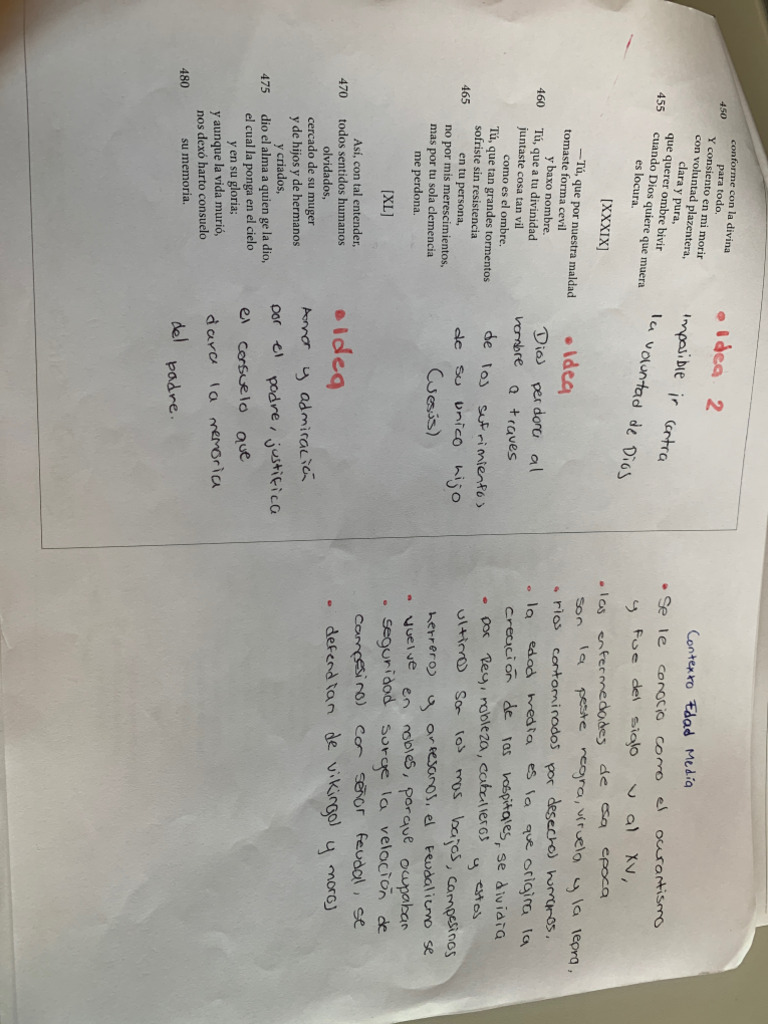 conforme con la divina
para todo.
450
Y consiento en mi morir
con voluntad plazentera,
clara y pura,
que querer ombre bivir
cuando Dios quiere que muera
455
es locura.
[XXXIX]
—Tú, que por nuestra maldad
tomaste forma cevil
y baxo nombre,
460 Tú, que a tu divinidad
juntaste cosa tan vil
como es el ombre.
Tú, que tan grandes tormentos
sofriste sin resistencia
465 en tu persona,
no por mis merescimientos,
mas por tu sola clemencia
me perdona.
[XL]
Así, con tal entender,
470 todos sentidos humanos
olvidados,
cercado de su muger
y de hijos y de hermanos
y criados,
475 dio el alma a quien ge la dio,
el cual la ponga en el cielo
y en su gloria;
y aunque la vida murió,
nos dexó harto consuelo
480 su memoria.
• Idea 2
Imposible ir contra
la voluntad de Dios
• Idea
Dios perdona al
hombre a traves
de los sufrimientos
de su unico hijo
(Jesús)
• Idea
Amor y admiración
por el padre, justifica
el consuelo que
dara la memoria
del padre.
Contexto Edad Media
• Se le conocio como el ocurantismo
y fue del siglo V al XV,
• las enfermedades de esa epoca
son la peste negra, viruela y la lepra,
• rios contaminados por desechos humanos,
• la edad media es la que origina la
creación de los hospitales, se dividia
• por Rey, nobleza, caballeros y estos
ultimos son los mas bajos, campesinos
herreros y artesanos, el feudalismo se
• vuelve en nobles, porque ocupaban
• seguridad surge la relación de
campesinos con señor feudal, se
• defendian de vikingos y moros